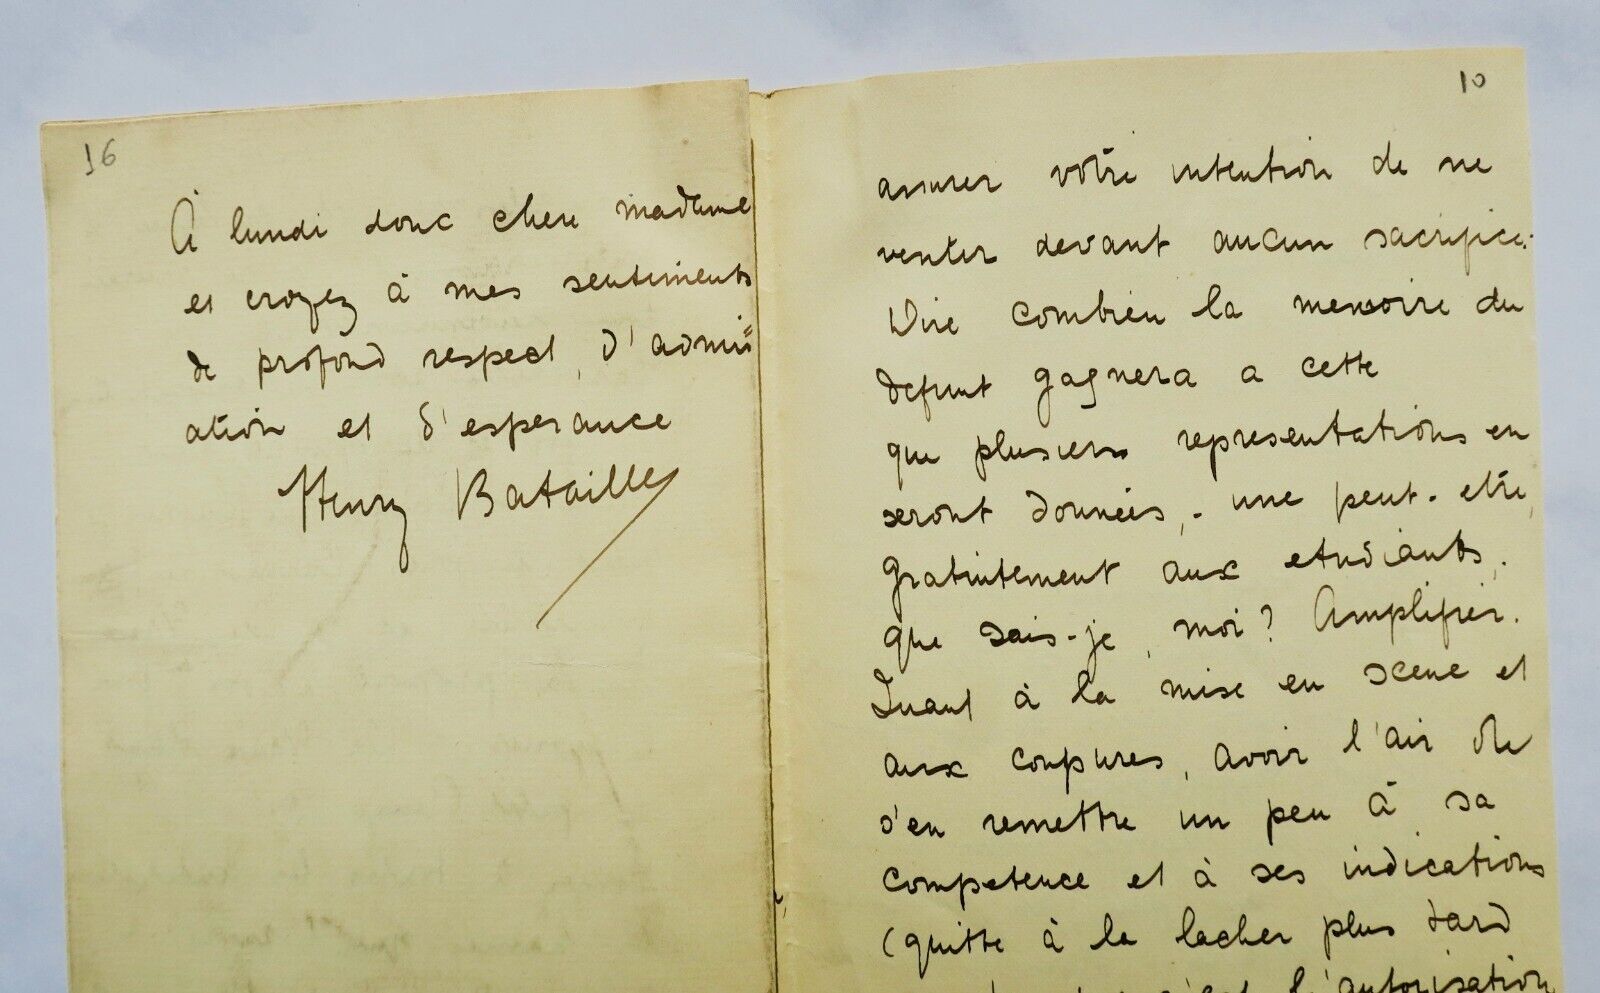 16
À lundi donc chere madame
et croyez à mes sentiments
de profond respect, d'admir
ation et d'esperance
Henry Bataille
10
assurer votre intention de ne
devant aucun sacrifice.
Dire combien la memoire du
defunt gagnera a cette
que plusieurs representations en
seront données, - une peut-etre,
gratuitement aux etudiants.
que sais-je, moi? Amplifier.
Quant à la mise en scene et
aux coupures, avoir l'air de
s'en remettre un peu à sa
competence et à ses indications
(quitte à la lacher plus tard
l'autorisation